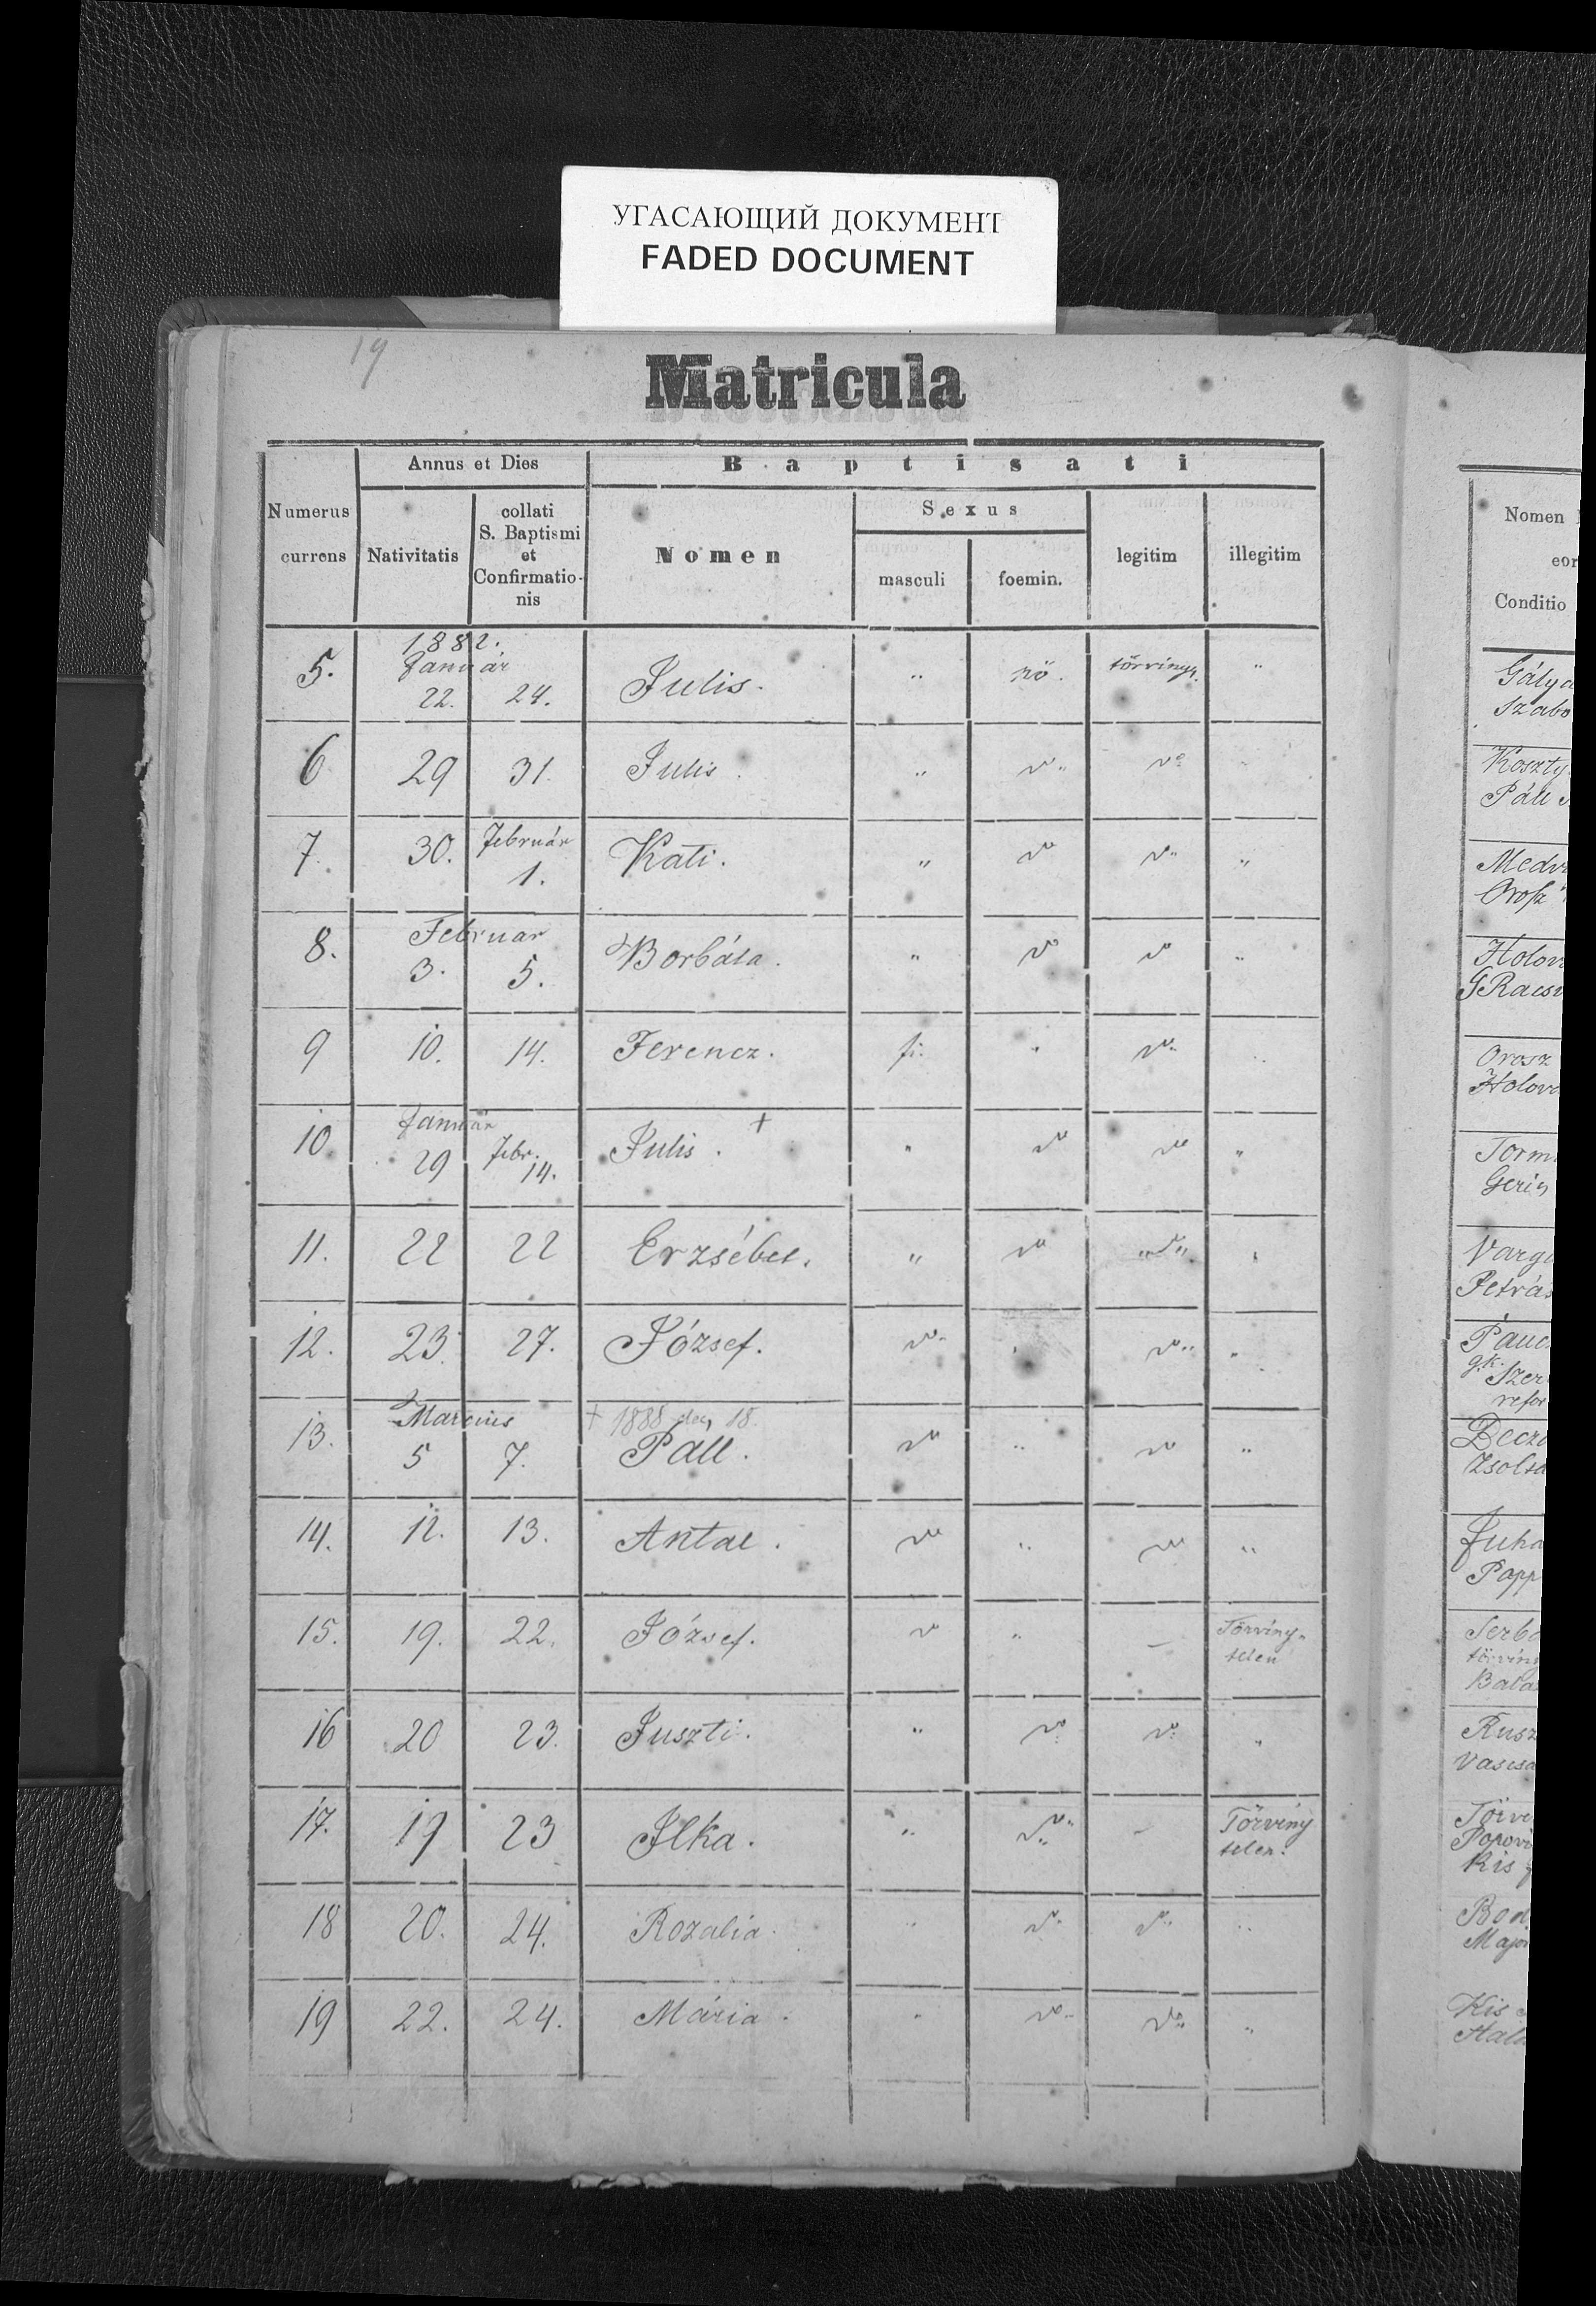 УГАСАЮЩИЙ ДОКУМЕНТ
FADED DOCUMENT
19
Matricula
Numerus currens
Annus et Dies
Nativitatis
collati S. Baptismi et Confirmatio-nis
Baptisati
Nomen
Sexus
masculi
foemin.
legitim
illegitim
1882.
Január
5. 22. 24. Julis. " nő. törvénys. "
6 29 31. Julis. "
7. 30. Február 1. Kati. " "
Február
8. 3. 5. Borbála. " "
9 10. 14. Ferencz. fi. "
Január
10. 29 Febr. 14. Julis. + " "
11. 22 22 Erzsébet. "
12. 23. 27. József. "
Marcius
+ 1888 dec 18.
13. 5 7. Páll. " "
14. 12. 13. Antal. " "
15. 19. 22. József. " – Törvény-
telen
16 20 23. Juszti. " "
17. 19 23 Ilka. " – Törvény
telen.
18 20. 24. Rozalia. " "
19 22. 24. Mária. " "
Nomen
Conditio
Gálya
Szabo
Koszty
Páll
Medv
Orosz
Holov
Orosz
Holov
Torm
Varg
Petrás
g.k.
refor
Zsolta
Juha
Papp
Serb
törvény
Bala
Rusz
Popovi
Kis
Kis